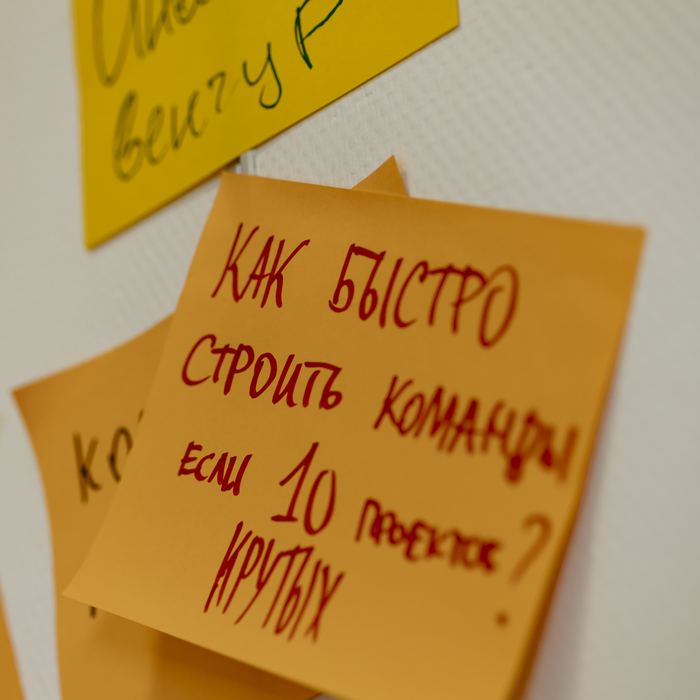 венчур
КАК БЫСТРО
СТРОИТЬ КОМАНДЫ
ЕСЛИ 10 ПРОЕКТОВ?
КРУТЫХ